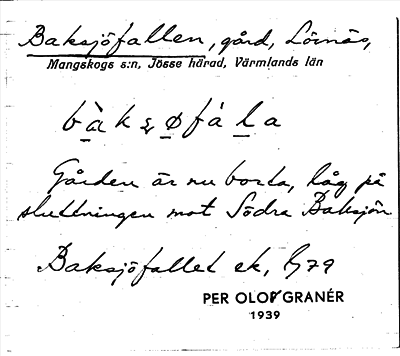 Baksjöfallen, gård, Lörnäs,
Mangskogs s:n, Jösse härad, Värmlands län
Gården är nu borta, låg på
sluttningen mot Södra Baksjön
Baksjöfallet ek, G79
PER OLOF GRANÉR
1939